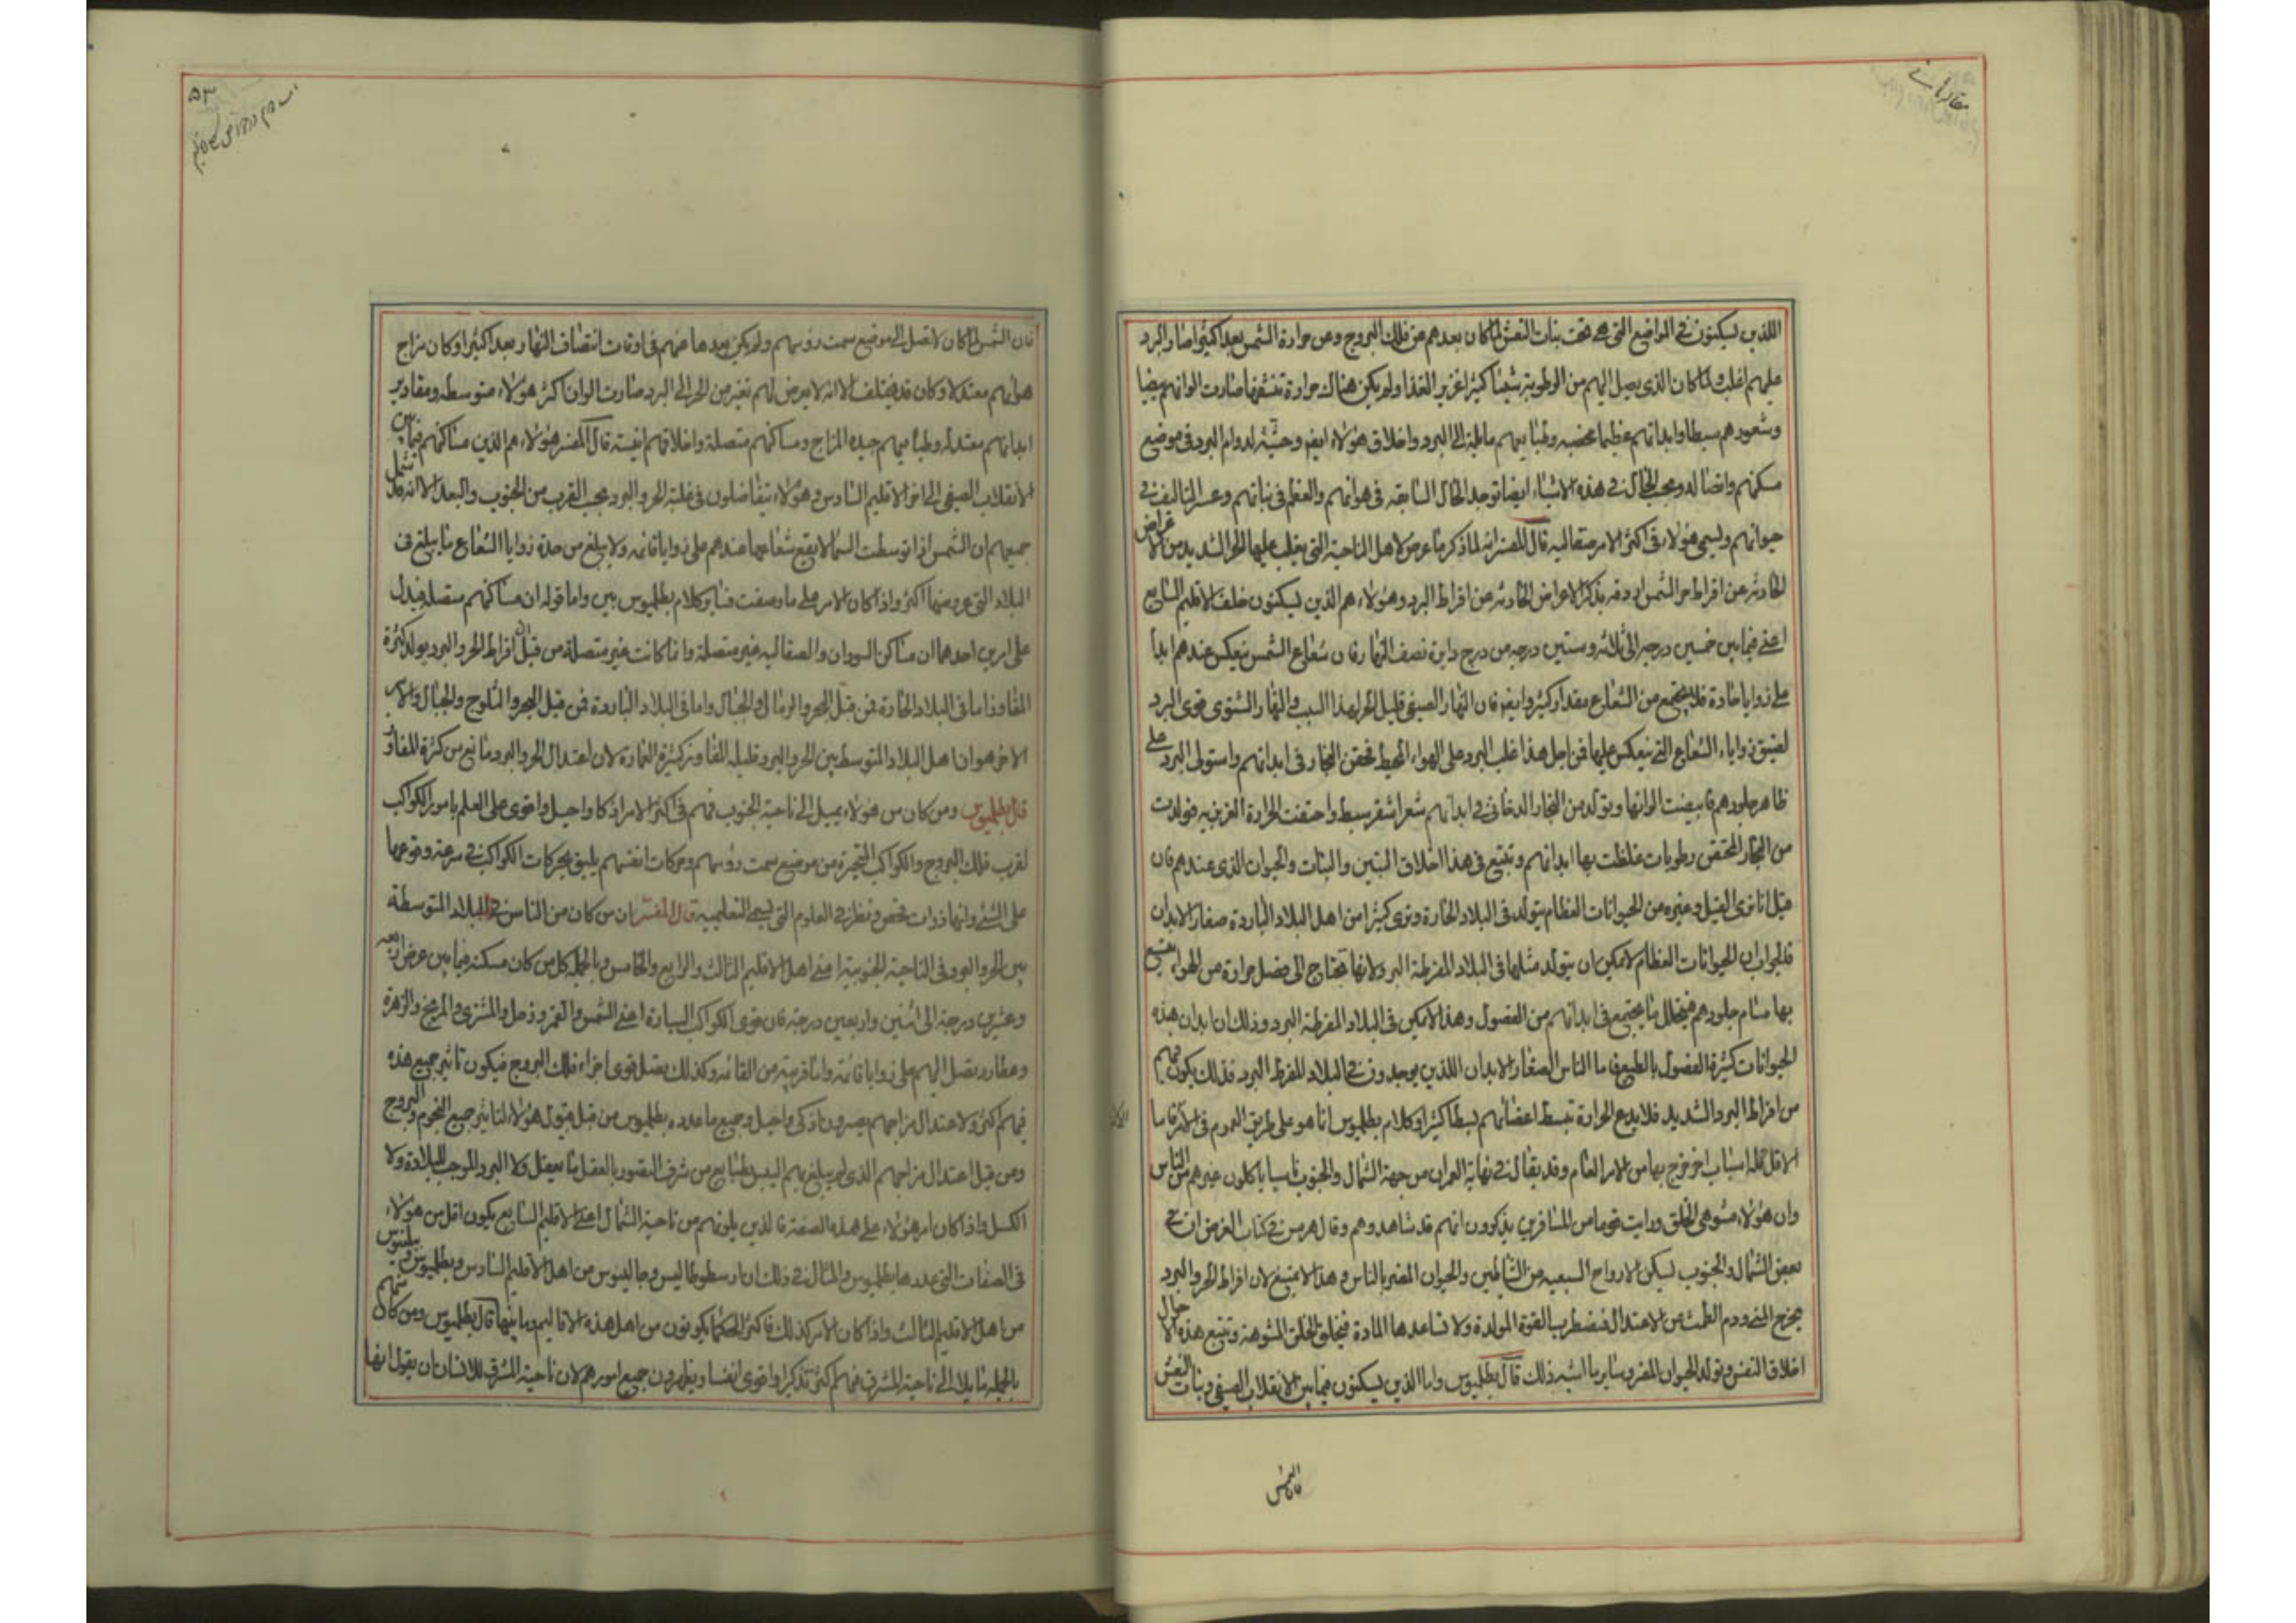 مقاله ثانیه
اللذين ليكنون في المواضع التي هي تحت بنات النعش لما كان بعدهم عن فلك البروج وعن حرارة الشمس بعدا كثيرا صار البرد
عليهم اغلب ولما كان الذي يصل اليهم من الرطوبة شيئا كثيرا غزير الغذا ولم يكن هناك حرارة تنشفها صارت الوانهم بيضا
وشعورهم سبطا وابدانهم عظيما مخصبه وطبايعهم مايلة الى البرد واخلاق هؤلاء ايضا وحشيّة لدوام البرد في موضع
مسكنهم واتصاله وبحسب الحال في هذه الاشياء ايضا توجد الحال التابعة في هوائهم والعظم في نباتهم وعسر التاليف في
حيوانهم وليسمى هؤلاء في اكثر الامر صقالبه قال المفسر انه لما ذكر ما عرض لاهل الناحية التي يغلب عليها الحر الشديد من الاعراض
الحادثة عن افراط حر الشمس اردفه بذكر الاعراض الحادثه عن افراط البرد وهؤلاء هم الذين ليكنون خلف الاقليم السابع
اعني فيما بين خمسين درجه الى ثلاثه وستين درجه من درج دايرة نصف النهار فان شعاع الشمس ينعكس عندهم ابدا
على زوايا حادة فلا يجتمع من الشعاع مقدار كثير وايضا فان النهار الصيفي قليل الحر لهذا السبب والنهار الشتوي قوي البرد
لضيق زواياء الشعاع التي ينعكس عليها فمن اجل هذا غلب البرد على الهواء المحيط فحقن البخار في ابدانهم واستولى البرد على
ظاهر جلودهم فابيضت الوانها وتولد من البخار الدخاني في ابدانهم شعر اشقر سبط واحتقنت الحرارة الغريزيه فولدت
من البخار المحتقن رطوبات غلظت بها ابدانهم وتتبع في هذا اخلاق البتين والنبات والحيوان الذي عندهم فان
قيل انا نرى الفيل وغيره من الحيوانات العظام يتولد في البلاد الحارة ونرى كثيرا من اهل البلاد الباردة صغار الابدان
فالجواب ان الحيوانات العظام لا يمكن ان يتولد مثلها في البلاد المفرطة البرد لانها تحتاج الى فضل حرارة من الهواء يتسع
بها مسام جلودهم فيتحلل ما يجتمع في ابدانهم من الفضول وهذا لا يمكن في البلاد المفرطة البرد وذلك ان ابدان هذه
الحيوانات كثيرة الفضول بالطبع فاما الناس الصغار الابدان اللذين يوجدون في البلاد المفرط البرد فذلك يكون فيهم
من افراط البرد الشديد فلا يدع الحرارة تبسط اعضائهم بسطا كثيرا وكلام بطلميوس انما هو على طريق العموم في الاكثر فاما
الاقل فله اسباب اخر خرج بها من الامر العام وقد يقال في نهاية العمران من جهة الشمال والجنوب ناسا ياكلون غيرهم من الناس
وان هؤلاء مشوهي الخلق ورايت قوما من المسافرين يذكرون انهم قد شاهدوهم وقال هرمس في كتاب العرض ان في
بعض الشمال والجنوب ليسكن الارواح السبعيه من الشياطين والحيوان المضر بالناس وهذا لا يمتنع لان افراط الحر والبرد
يخرج المني ودم الطمث من الاعتدال فتضطرب القوة المولدة ولا تساعدها المادة فيخلق الخلق المشوهة وتتبع هذه الاحوال
اخلاق النفس وتولد الحيوان المضر وساير ما اشبه ذلك قال بطلميوس واما الذين ليسكنون فيما بين الانقلاب الصيفي وبنات النعش
فان الشمس
٥٣
فان الشمس لما كان لا تصل الى موضع سمت رؤسهم ولم يكن بعدها عنهم في اوقات انتصاف النهار بعدا كثيرا وكان مزاج
هوائهم معتدلا وكان قد يختلف الا انه لا يعرض لهم تغير من الحر الى البرد صارت الوان اكثر هؤلاء متوسطه ومقادير
ابدانهم معتدله وطبايعهم جيده المزاج ومساكنهم متصلة واخلاقهم انيسة قال المفسر هؤلاء هم الذين مساكنهم فيما بين
الانقلاب الصيفي الى اخر الاقليم السادس وهؤلاء يتفاضلون في غلبة الحر والبرد بحسب القرب من الجنوب والبعد الا انه قد شمل
جميعهم ان الشمس اذا توسطت السما لا يقع شعاعها عندهم على زوايا قائمه ولا يبلغ من حدة زوايا الشعاع ما يبلغ في
البلاد التي عروضها اكثر واذا كان الامر على ما وصفت فساير كلام بطلميوس بين واما قوله ان مساكنهم متصله فيدل
على امرين احدهما ان مساكن السودان والصقالبه غير متصلة وانما كانت غير متصلة من قبل ان افراط الحر والبرد يولد كثرة
المفاوز اما في البلاد الحارة فمن قبل البحر والرمال والجبال واما في البلاد الباردة فمن قبل البحر والثلوج والجبال والامر
الاخر هو ان اهل البلاد المتوسط بين الحر والبرد قليله المفاوز كثيرة العمارة لان اعتدال الحر والبرد مانع من كثرة المفاوز
قال بطلميوس ومن كان من هؤلاء يميل الى ناحية الجنوب فهم في اكثر الامر اذكا واحيل واقوى على العلم بامور الكواكب
لقرب فلك البروج والكواكب المتحيرة من موضع سمت رؤسهم وحركات انفسهم يليق بحركات الكواكب في سرعة وقوعها
على الشئ وانها ذوات فحص ونظر في العلوم التي ليسمى التعليميه قال المفسر ان من كان من الناس في البلاد المتوسطه
بين الحر والبرد في الناحية الجنوبية اعني اهل الاقليم الثالث والرابع والخامس وبالجمله كل من كان مسكنه فيما بين عرض اربعه
وعشرين درجة الى اثنين واربعين درجة فان قوى الكواكب السيارة اعني الشمس والقمر وزحل والمشتري والمريخ والزهرة
وعطارد تصل اليهم على زوايا قائمه واما قريبة من القائمه وكذلك يصل قوى اجزاء فلك البروج فيكون تاثير جميع هذه
فيهم اكثر ولاعتدال مزاجهم يصيرون اذكى واحيل وجميع ما عدده بطلميوس من قبل قبول هؤلاء لتاثير جميع النجوم والبروج
ومن قبل اعتدال مزاجهم الذي لم يبلغ بهم اليبس بطبايع من شرف التصور بالعقل ما يعقل ولا البرد الموجب للبلادة ولا
الكسل واذا كان امر هؤلاء على هذه الصفة فالذين يلونهم من ناحية الشمال اعني الاقليم السابع يكون اقل من هؤلاء
في الصفات التي عددها بطلميوس والمثال في ذلك ان ارسطوطاليس وجالينوس من اهل الاقليم السادس وبطلميوس
من اهل الاقليم الثالث واذا كان الامر كذلك فاكثر الحكما يكونون من اهل هذه الاقاليم وما بينها قال بطلميوس ومن كان منهم
بالجمله مايلا الى ناحية المشرق فهم اكثر تذكيرا واقوى انفسا ويظهرون جميع امورهم لان ناحية المشرق للانسان ان يقول انها